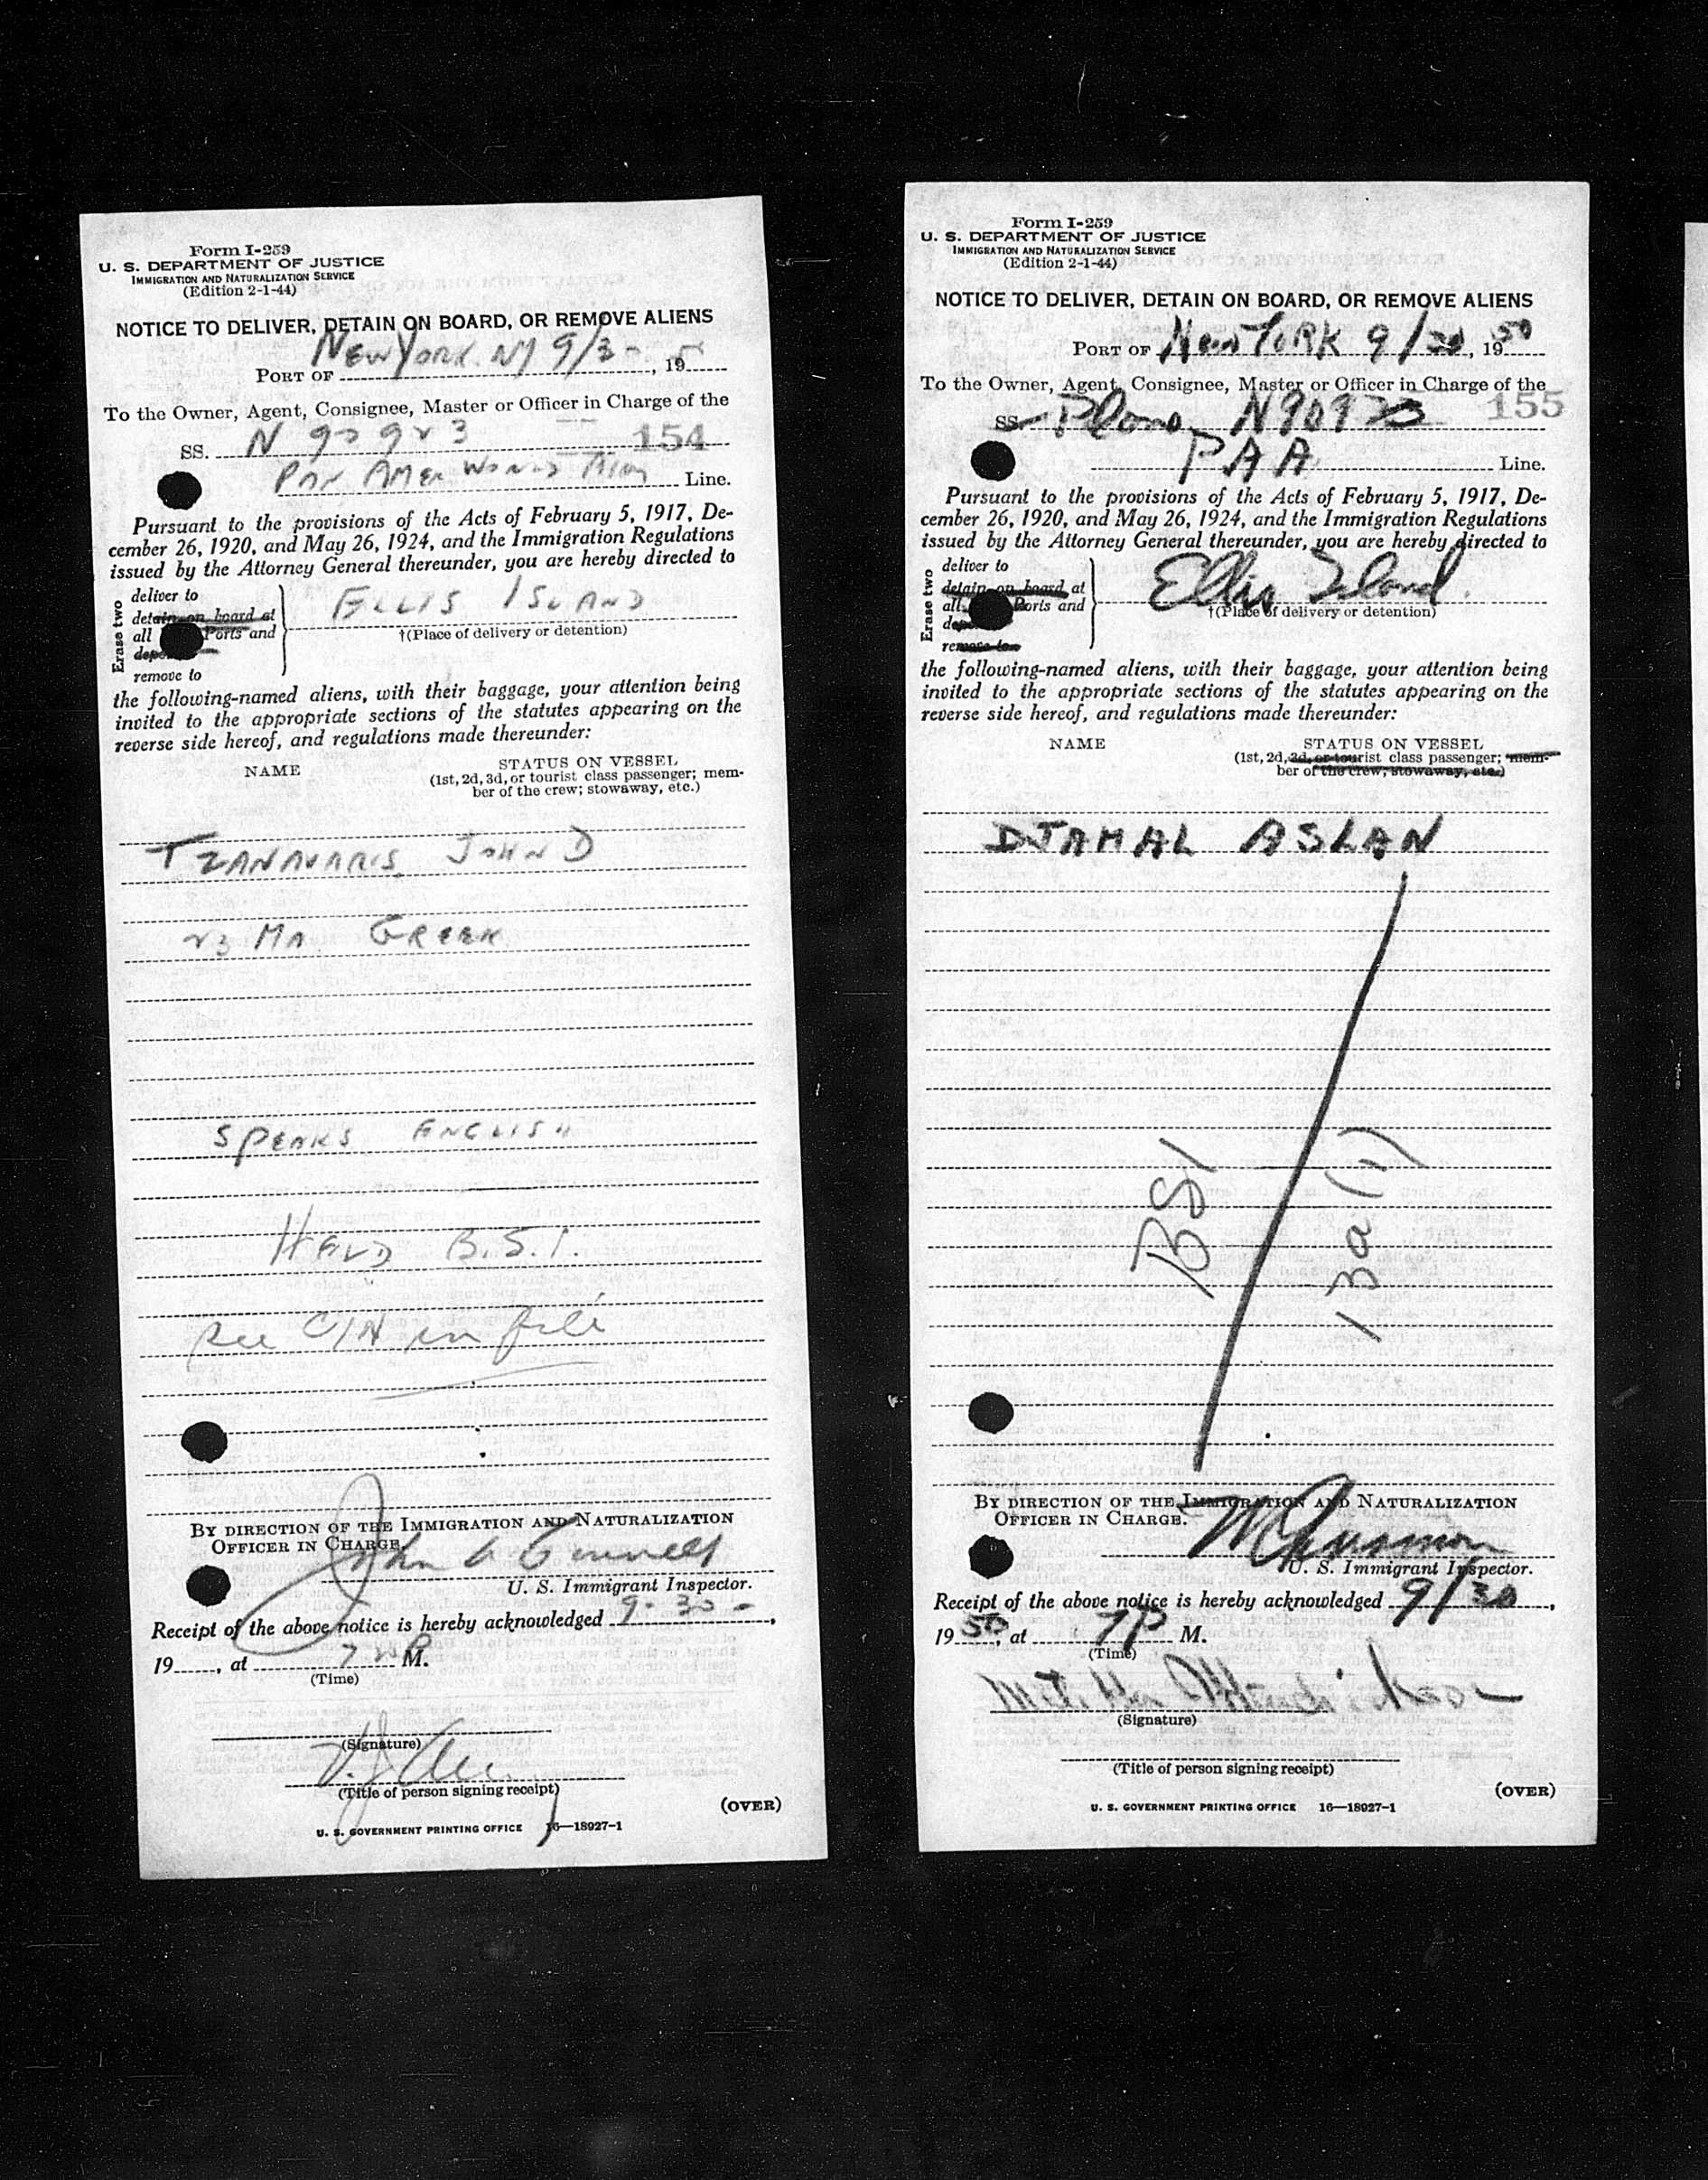 Form I-259
U. S. DEPARTMENT OF JUSTICE
IMMIGRATION AND NATURALIZATION SERVICE
(Edition 2-1-44)
NOTICE TO DELIVER, DETAIN ON BOARD, OR REMOVE ALIENS
PORT OF New York NY 9/30, 195
To the Owner, Agent, Consignee, Master or Officer in Charge of the
SS. N 90923 154
PAN AMER WORLD Line.
Pursuant to the provisions of the Acts of February 5, 1917, De-
cember 26, 1920, and May 26, 1924, and the Immigration Regulations
issued by the Attorney General thereunder, you are hereby directed to
Erase two
deliver to
detain on board at
all Ports and
remove to
ELLIS ISLAND
†(Place of delivery or detention)
the following-named aliens, with their baggage, your attention being
invited to the appropriate sections of the statutes appearing on the
reverse side hereof, and regulations made thereunder:
NAME
STATUS ON VESSEL
(1st, 2d, 3d, or tourist class passenger; mem-
ber of the crew; stowaway, etc.)
TZANAVARIS, JOHN D
23 MA GREEK
SPEAKS ENGLISH
HELD B.S.I.
see C/N in file
BY DIRECTION OF THE IMMIGRATION AND NATURALIZATION
OFFICER IN CHARGE.
John
U. S. Immigrant Inspector.
Receipt of the above notice is hereby acknowledged 9-30-,
19 , at 7 P M.
(Time)
(Signature)
(Title of person signing receipt)
(OVER)
U. S. GOVERNMENT PRINTING OFFICE 16—18927-1
Form I-259
U. S. DEPARTMENT OF JUSTICE
IMMIGRATION AND NATURALIZATION SERVICE
(Edition 2-1-44)
NOTICE TO DELIVER, DETAIN ON BOARD, OR REMOVE ALIENS
PORT OF New York 9/30, 1950
To the Owner, Agent, Consignee, Master or Officer in Charge of the
SS. Plane N90923 155
PAA Line.
Pursuant to the provisions of the Acts of February 5, 1917, De-
cember 26, 1920, and May 26, 1924, and the Immigration Regulations
issued by the Attorney General thereunder, you are hereby directed to
Erase two
deliver to
detain on board at
all Ports and
remove to
Ellis Island.
†(Place of delivery or detention)
the following-named aliens, with their baggage, your attention being
invited to the appropriate sections of the statutes appearing on the
reverse side hereof, and regulations made thereunder:
NAME
STATUS ON VESSEL
(1st, 2d, 3d, or tourist class passenger; mem-
ber of the crew; stowaway, etc.)
DJAMAL ASLAN
BSI
13a(1)
BY DIRECTION OF THE IMMIGRATION AND NATURALIZATION
OFFICER IN CHARGE.
U. S. Immigrant Inspector.
Receipt of the above notice is hereby acknowledged 9/30,
1950, at 7P M.
(Time)
(Signature)
(Title of person signing receipt)
(OVER)
U. S. GOVERNMENT PRINTING OFFICE 16—18927-1